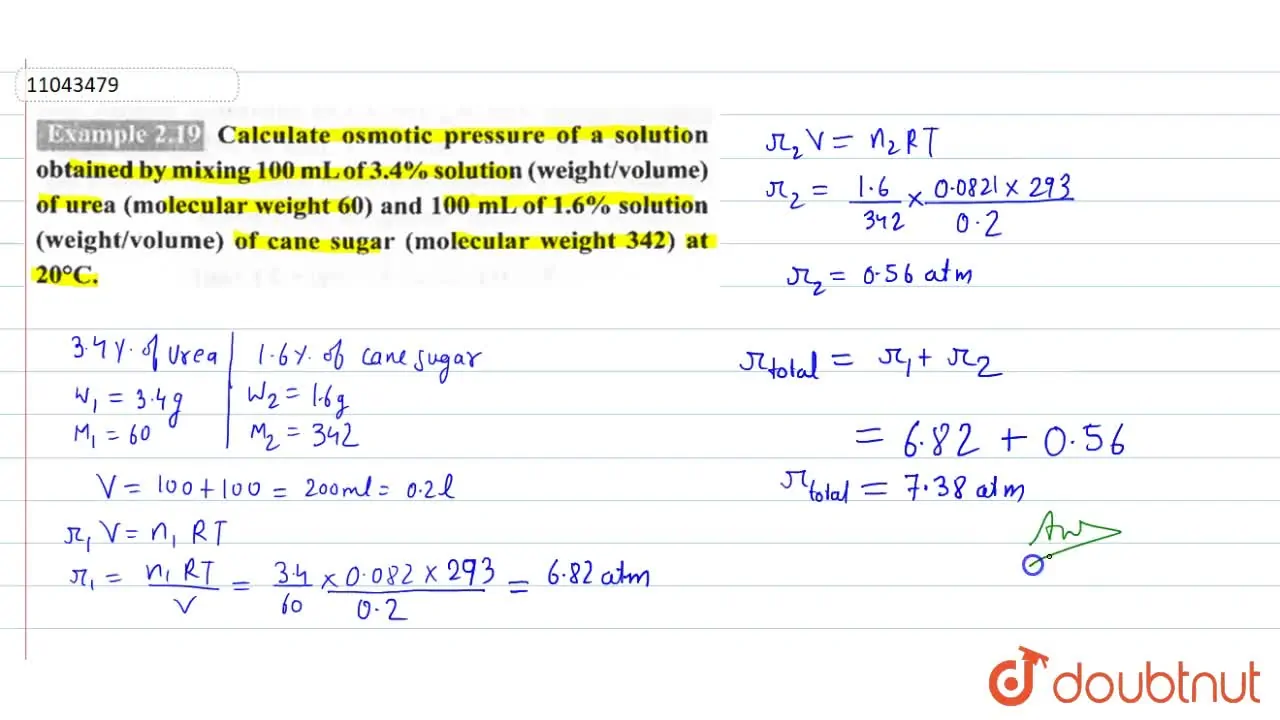 11043479
Example 2.19 Calculate osmotic pressure of a solution
obtained by mixing 100 mL of 3.4% solution (weight/volume)
of urea (molecular weight 60) and 100 mL of 1.6% solution
(weight/volume) of cane sugar (molecular weight 342) at
20°C.
3.4% of Urea | 1.6% of cane sugar
W₁ = 3.4g | W₂ = 1.6g
M₁ = 60 | M₂ = 342
V = 100 + 100 = 200ml = 0.2l
π₁ V = n₁ RT
π₁ = n₁ RT / V = 3.4 / 60 × 0.082 × 293 / 0.2 = 6.82 atm
π₂ V = n₂ RT
π₂ = 1.6 / 342 × 0.0821 × 293 / 0.2
π₂ = 0.56 atm
π total = π₁ + π₂
= 6.82 + 0.56
π total = 7.38 atm
Ans
doubtnut